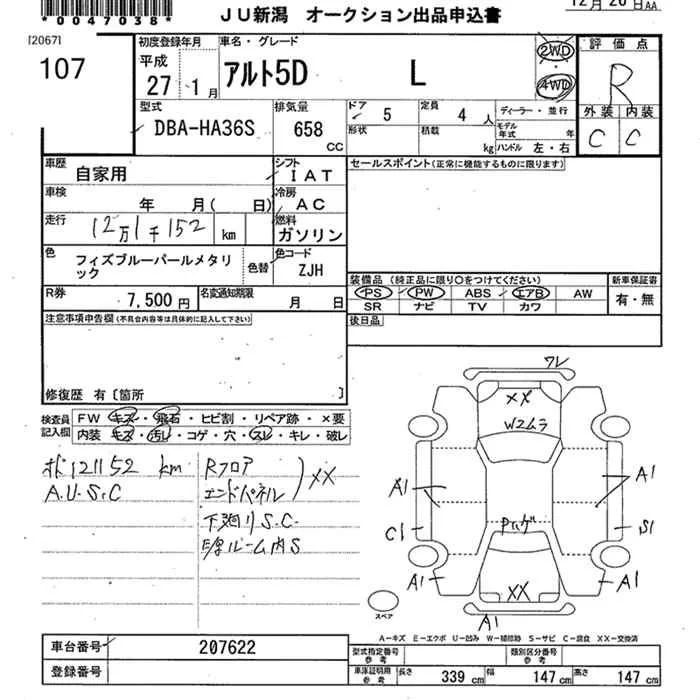 *0047038*
JU新潟 オークション出品申込書
12月20日AA
[2067]
107
初度登録年月
平成
27 1月
車名・グレード
アルト5D L
2WD
4WD
評価点
R
外装 内装
C C
型式
DBA-HA36S
排気量
658
CC
ドア
5
定員
4 人
形状
積載
kg
ディーラー・並行
モデル年式 年
ハンドル 左・右
車歴
自家用
シフト
IAT
セールスポイント(正常に機能するものに限ります)
車検
年 月( 日)
冷房
AC
走行
12万1千152 km
燃料
ガソリン
色
フィズブルーパールメタリック
色替
色コード
ZJH
R券
7,500円
名変通知期限
月 日
装備品 (純正品に限り○をつけてください)
PS PW ABS エアB AW
SR ナビ TV カワ
新車保証書
有・無
後日品
注意事項申告欄(不具合内容等は具体的に記入して下さい)
修復歴 有[箇所 ]
検査員記入欄
FW キズ・飛石・ヒビ割・リペア跡・×要
内装 キズ・汚レ・コゲ・穴・スレ・キレ・破レ
121152 km
A.U.S.C
Rフロア
エンドパネル
XX
下廻りS.C.
ルーム内S
ワレ
XX
W2ムラ
A1
A1
C1
S1
Pハゲ
A1
XX
A1
A1
スペア
A−キズ E−エクボ U−凹み W−補修跡 S−サビ C−腐食 XX−交換済
車台番号
207622
登録番号
型式指定番号
参考
類別区分番号
参考
車庫証明用
参考
長さ 339cm 幅 147cm 高さ 147cm